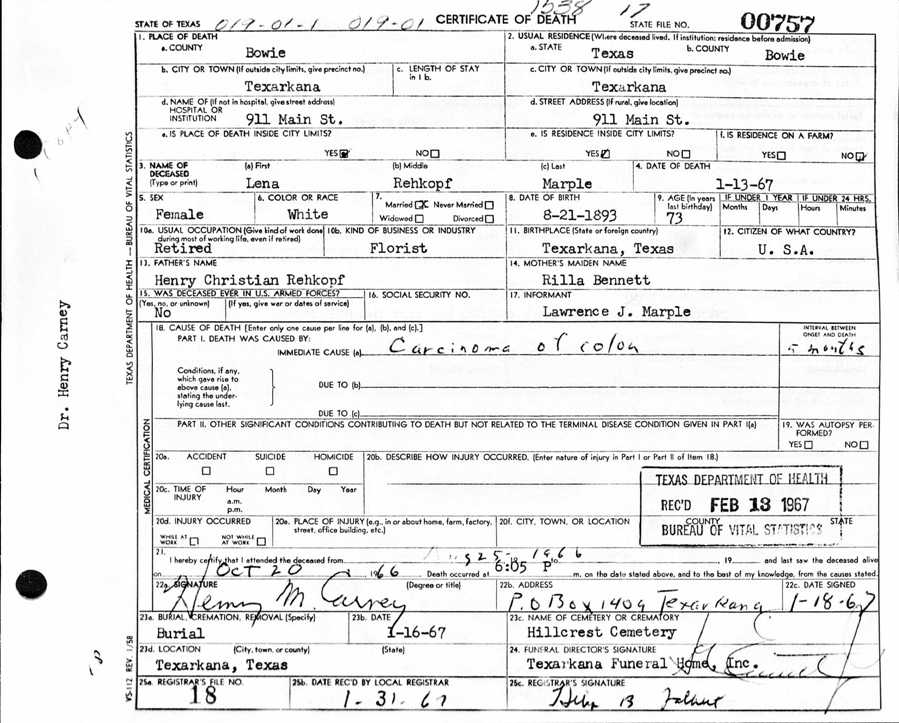 1538 17
STATE OF TEXAS 019-01-1 019-01 CERTIFICATE OF DEATH STATE FILE NO. 00757
1. PLACE OF DEATH
a. COUNTY
Bowie
2. USUAL RESIDENCE (Where deceased lived. If institution: residence before admission)
a. STATE Texas b. COUNTY Bowie
b. CITY OR TOWN (If outside city limits, give precinct no.)
Texarkana
c. LENGTH OF STAY in 1 b.
c. CITY OR TOWN (If outside city limits, give precinct no.)
Texarkana
d. NAME OF (If not in hospital, give street address)
HOSPITAL OR
INSTITUTION 911 Main St.
d. STREET ADDRESS (If rural, give location)
911 Main St.
e. IS PLACE OF DEATH INSIDE CITY LIMITS?
YES NO
e. IS RESIDENCE INSIDE CITY LIMITS?
YES NO
f. IS RESIDENCE ON A FARM?
YES NO
3. NAME OF DECEASED
(Type or print)
(a) First
Lena
(b) Middle
Rehkopf
(c) Last
Marple
4. DATE OF DEATH
1-13-67
5. SEX
Female
6. COLOR OR RACE
White
7.
Married X Never Married
Widowed Divorced
8. DATE OF BIRTH
8-21-1893
9. AGE (In years last birthday)
73
IF UNDER 1 YEAR
Months Days
IF UNDER 24 HRS.
Hours Minutes
10a. USUAL OCCUPATION (Give kind of work done during most of working life, even if retired)
Retired
10b. KIND OF BUSINESS OR INDUSTRY
Florist
11. BIRTHPLACE (State or foreign country)
Texarkana, Texas
12. CITIZEN OF WHAT COUNTRY?
U. S.A.
13. FATHER'S NAME
Henry Christian Rehkopf
14. MOTHER'S MAIDEN NAME
Rilla Bennett
15. WAS DECEASED EVER IN U.S. ARMED FORCES?
(Yes, no, or unknown) (If yes, give war or dates of service)
No
16. SOCIAL SECURITY NO.
17. INFORMANT
Lawrence J. Marple
18. CAUSE OF DEATH [Enter only one cause per line for (a), (b), and (c).]
PART I. DEATH WAS CAUSED BY:
IMMEDIATE CAUSE (a) Carcinoma of colon
INTERVAL BETWEEN ONSET AND DEATH
months
Conditions, if any, which gave rise to above cause (a), stating the underlying cause last.
DUE TO (b)
DUE TO (c)
PART II. OTHER SIGNIFICANT CONDITIONS CONTRIBUTING TO DEATH BUT NOT RELATED TO THE TERMINAL DISEASE CONDITION GIVEN IN PART I(a)
19. WAS AUTOPSY PERFORMED?
YES NO
MEDICAL CERTIFICATION
20a. ACCIDENT SUICIDE HOMICIDE
20b. DESCRIBE HOW INJURY OCCURRED. (Enter nature of injury in Part I or Part II of Item 18.)
20c. TIME OF INJURY
Hour Month Day Year
a.m.
p.m.
TEXAS DEPARTMENT OF HEALTH
REC'D FEB 13 1967
BUREAU OF VITAL STATISTICS
20d. INJURY OCCURRED
WHILE AT WORK NOT WHILE AT WORK
20e. PLACE OF INJURY (e.g., in or about home, farm, factory, street, office building, etc.)
20f. CITY, TOWN, OR LOCATION COUNTY STATE
21.
I hereby certify that I attended the deceased from 25 1966 to 19 and last saw the deceased alive
on Oct 20 1966 Death occurred at 6:05 P m. on the date stated above, and to the best of my knowledge, from the causes stated.
22a. SIGNATURE (Degree or title)
Henry M. Carney
22b. ADDRESS
P.O Box 1409 Texarkana
22c. DATE SIGNED
1-18-67
23a. BURIAL, CREMATION, REMOVAL (Specify)
Burial
23b. DATE
1-16-67
23c. NAME OF CEMETERY OR CREMATORY
Hillcrest Cemetery
23d. LOCATION (City, town, or county) (State)
Texarkana, Texas
24. FUNERAL DIRECTOR'S SIGNATURE
Texarkana Funeral Home, Inc.
25a. REGISTRAR'S FILE NO.
18
25b. DATE REC'D BY LOCAL REGISTRAR
1-31-67
25c. REGISTRAR'S SIGNATURE
Dr. Henry Carney
TEXAS DEPARTMENT OF HEALTH — BUREAU OF VITAL STATISTICS
VS-112 REV. 1/58